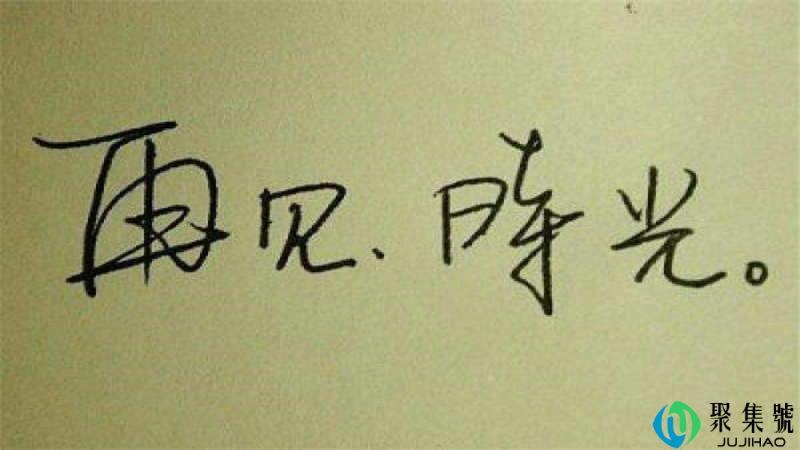 再见、時光。
聚集號
JUJIHAO